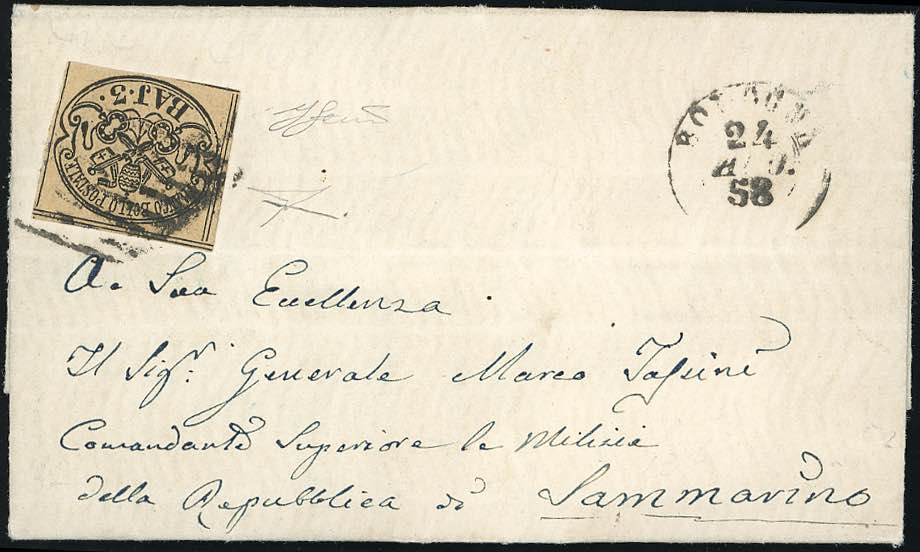 BAJ·3·
FRANCO BOLLO POSTALE
BOLOGNA
24
AGO.
58
A Sua Eccellenza
Il Sigr. Generale Marco Tassini
Comandante Superiore le Milizie
della Repubblica di Sammarino